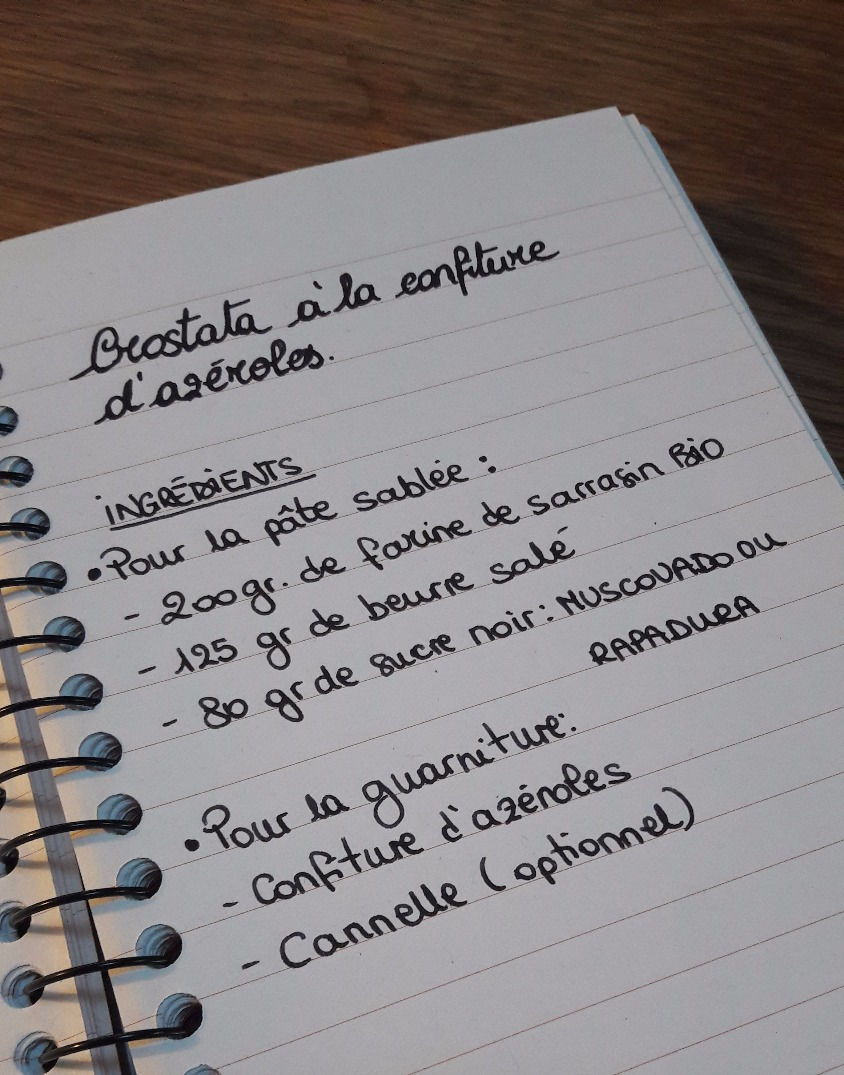 Crostata à la confiture
d'azéroles.
iNGRÉDiENTS
• Pour la pâte sablée :
- 200gr. de farine de sarrasin Bio
- 125 gr de beurre salé
- 80 gr de sucre noir : MUSCOVADO OU
RAPADURA
• Pour la guarniture:
- Confiture d'azéroles
- Cannelle (optionnel)